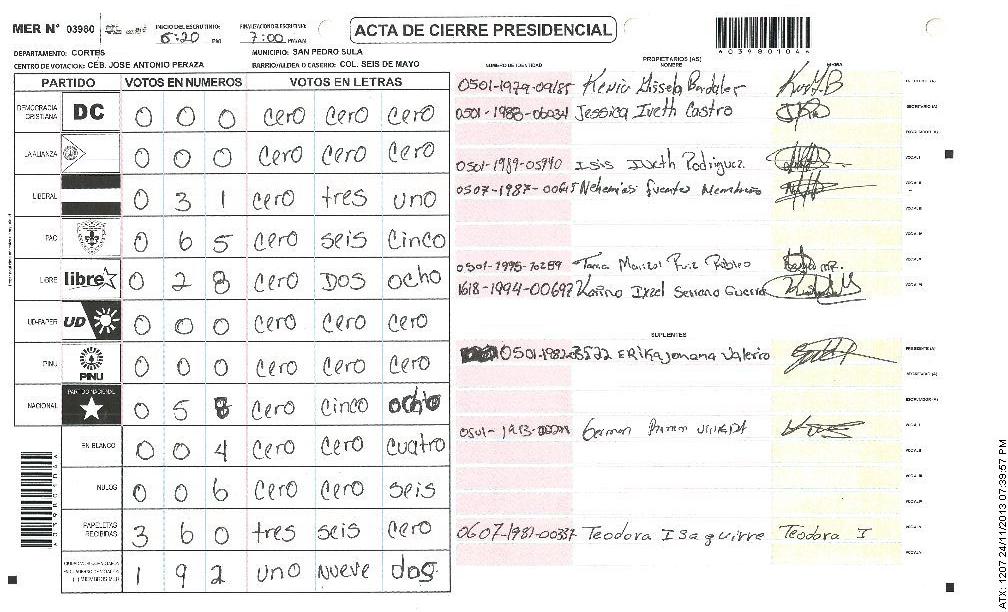 MER N° 03980
INICIO DEL ESCRUTINIO: 5:20 PM
FINALIZACION DEL ESCRUTINIO: 7:00
ACTA DE CIERRE PRESIDENCIAL
4039801044
DEPARTAMENTO: CORTES
MUNICIPIO: SAN PEDRO SULA
CENTRO DE VOTACION: CEB. JOSE ANTONIO PERAZA
BARRIO/ALDEA O CASERIO: COL. SEIS DE MAYO
PARTIDO VOTOS EN NUMEROS VOTOS EN LETRAS
DEMOCRACIA CRISTIANA DC 0 0 0 cero cero cero
LA ALIANZA 0 0 0 cero cero cero
LIBERAL 0 3 1 cero tres uno
PAC 0 6 5 cero seis cinco
LIBRE libre 0 2 8 cero DOS ocho
UD-FAPER UD 0 0 0 cero cero cero
PINU PINU 0 0 0 cero cero cero
NACIONAL PARTIDO NACIONAL 0 5 8 cero cinco ocho
EN BLANCO 0 0 4 cero cero cuatro
NULOS 0 0 6 cero cero seis
PAPELETAS RECIBIDAS 3 6 0 tres seis cero
1 9 2 uno nueve dos
PROPIETARIOS (AS)
NUMERO DE IDENTIDAD NOMBRE FIRMA
0501-1979-09185
0501-1988-06034 Jessica Iveth Castro
SECRETARIO (A)
0501-1989-05940 Isis Iveth Rodriguez
VOCAL I
0507-1987-00615 Nehemias fuentes Membreño
VOCAL II
VOCAL III
0501-1995-10289 Ruiz Robleo
VOCAL IV
1618-1994-00697 Karino Ixzel Serrano Guerra
SUPLENTES
0501-1982-03522 Erika Jonana Valerio
PRESIDENTE (A)
SECRETARIO (A)
ESCRUTADOR (A)
0501-1973- German
VOCAL I
VOCAL II
VOCAL III
VOCAL IV
0607-1981-00337 Teodora Isaguirre Teodora I
VOCAL V
ATX: 1207 24/11/2013 07:39:57 PM